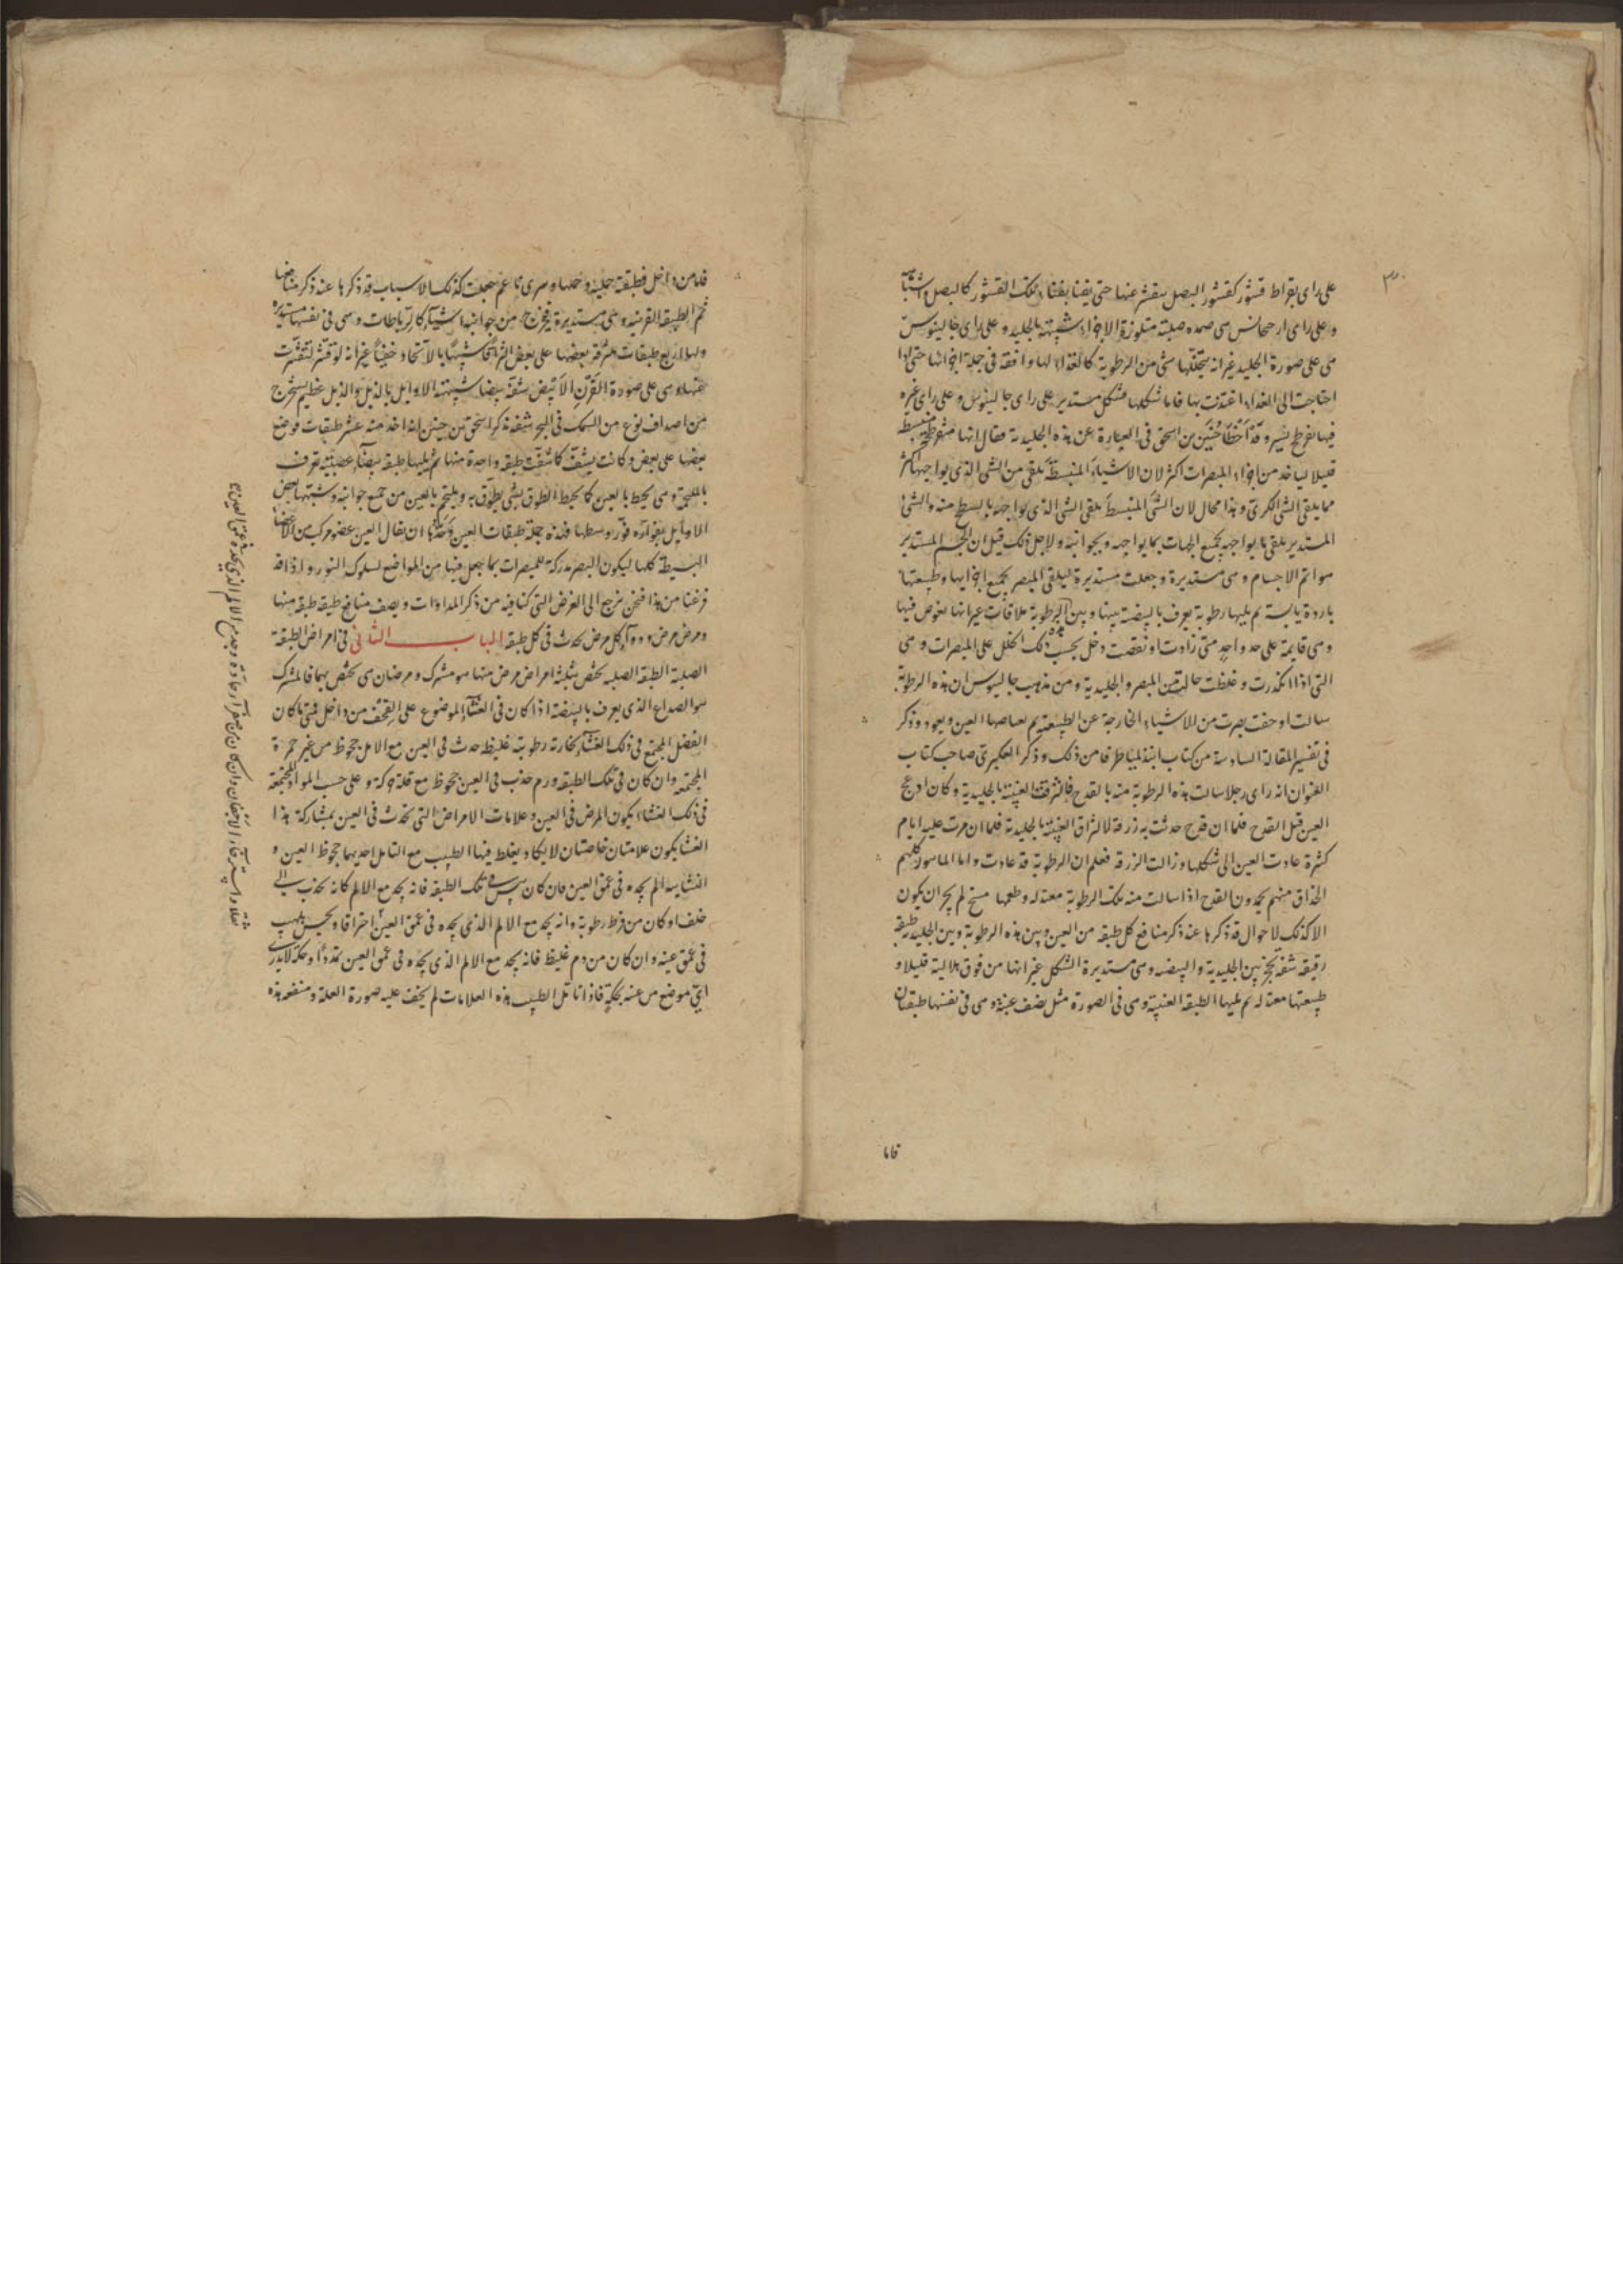 على راى بقراط قشور كقشور البصل ينقشر عنها حتى يفنا بفناء تلك القشور كالبصل
وعلى راى ارجحانس هى صلبة متلوزة الاجزاء شبيهة بالجليد وعلى راى جالينوس
هى على صورة الجليد غير انه يتخللها شى من الرطوبة كالغذاء لها وافقه فى جملة اجزائها حتى اذا
احتاجت الى الغذاء اغتذت بها فاما شكلها فشكل مستدير على راى جالينوس وعلى راى غيره
فيها تفرطح يسير وقد اخطا حنين بن اسحق فى العبارة عن هذه الجليدية فقال انها مفرطحة
قليلا لياخذ من اجزاء المبصرات اكثر لان الاشياء المنبسطة تلقى من الشى الذى يواجهها اكثر
مما يلقى الشى الكرى وهذا محال لان الشى المنبسط يلقى الشى الذى يواجهه بالسطح منه والشى
المستدير يلقى ما يواجهه بجميع الجهات بما يواجهه وبجوانبه ولاجل ذلك قيل ان الجسم المستدير
هو اتم الاجسام وهى مستديرة وجعلت مستديرة ليلقى المبصر بجميع اجزايها وطبيعتها
باردة يابسة ثم يليها رطوبة يعرف بالبيضية بينها وبين الرطوبة ملاقات غير انها تغوص فيها
وهى قايمة على حد واحد متى زادت او نقصت دخل بحسب ذلك الخلل على المبصرات وهى
التى اذا تكدرت وغلظت حالت بين المبصر والجليدية ومن مذهب جالينوس ان هذه الرطوبة
سالت او جفت بصرت من الاشياء الخارجة عن الطبيعة ويعود وذكر
فى تفسير المقالة السادسة من كتاب من ذلك وذكر العكبرى صاحب كتاب
العنوان انه راى رجلا سالت هذه الرطوبة منه بالقدح فالتزقت العنبية بالجليدية وكان ادعج
العين قبل القدح فلما ان قدح حدثت به زرقة لالتزاق العنبية بالجليدية فلما ان مرت عليه ايام
كثرة عادت العين الى شكلها وزالت الزرقة فعلم ان الرطوبة قد عادت واما كلهم
الحذاق منهم يجدون القدح اذا سالت منه تلك الرطوبة معتدلة وطعمها مسخ لم يجز ان يكون
الا كذلك لاحوال قد ذكرها عند ذكر منافع كل طبقه من العين وبين هذه الرطوبة وبين الجليدية طبقة
رقيقة شفة تحجز بين الجليدية والبيضية وهى مستديرة الشكل غير انها من فوق هلالية قليلا و
طبيعتها معتدلة ثم يليها الطبقة العنبية وهى فى الصورة مثل نصف عنبة وهى فى نفسها طبقتان
فاما
فاما من داخل فطبقة خملية وجعلت كذلك لاسباب قد ذكرها عند ذكر منافعها
ثم الطبقة القرنية وهى مستديرة يخرج من جوانبها اشياء كالرباطات وهى فى نفسها مستديرة
ولها اربع طبقات بعضها على بعض شبيها بالاتحاد خفيا غير انه لو قشر لتقشرت
عنها وهى على صورة القرن الابيض شفة بيضا شبهته الاوايل بالذبل والذبل عظم يستخرج
من اصداف نوع من السمك فى البحر شفة ذكر اسحق بن حنين انه اخذ منه عشر طبقات فوضع
بعضها على بعض وكانت يشف كما شفت طبقه واحدة منها ثم يليها طبقة بيضا عصبية تعرف
بالملتحمة وهى يحيط بالعين كما يحيط الطوق بشى يطوق به ويلتحم بالعين من جميع جوانبه وشبهها بعض
الاوايل بقوارة قور وسطها فهذه جملة طبقات العين وحدها ان يقال العين عضو مركب من الاعضا
البسيطة كلها ليكون البصر مدركه للمبصرات بما جعل فيها من المواضع لسلوك النور واذا قد
فرغنا من هذا فنحن نرجع الى الغرض التى كنا فيه من ذكر المداوات ويصف منافع طبقه طبقه منها
ومرض مرض ودواء كل مرض يحدث فى كل طبقه الباب الثانى فى امراض الطبقة
الصلبة الطبقه الصلبه يختص بثلثة امراض مرض منها هو مشترك ومرضان هى يختص بهما فالمشترك
هو الصداع الذى يعرف بالبيضة اذا كان فى الغشاء الموضوع على القحف من داخل فمتى ما كان
الفضل المجتمع فى ذلك الغشاء بخارته رطوبة غليظ حدث فى العين مع الالم جحوظ من غير حمرة
المجتمعه وان كان فى تلك الطبقه ورم حدث فى العين جحوظ مع قلة حركة وعلى حسب المواد المجتمعة
فى ذلك الغشاء يكون المرض فى العين وعلامات الامراض التى تحدث فى العين بمشاركة هذا
الغشا يكون علامتان خاصتان لا يكاد يغلط فيها الطبيب مع التامل احديهما جحوظ العين و
الثانية الم يجده فى عمق العين فان كان يبس فى تلك الطبقه فانه يجد مع الالم كانه يجذب الى
خلف وكان من فرط رطوبة وانه يجد مع الالم الذى يجده فى عمق العين احتراقا ويحس بلهيب
فى عمق عينه وان كان من دم غليظ فانه يجد مع الالم الذى يجده فى عمق العين تمددا وحكة لا يدرى
اى موضع من عينه بحكة فاذا تامل الطبيب هذه العلامات لم يخف عليه صورة العلة ومنفعة هذه